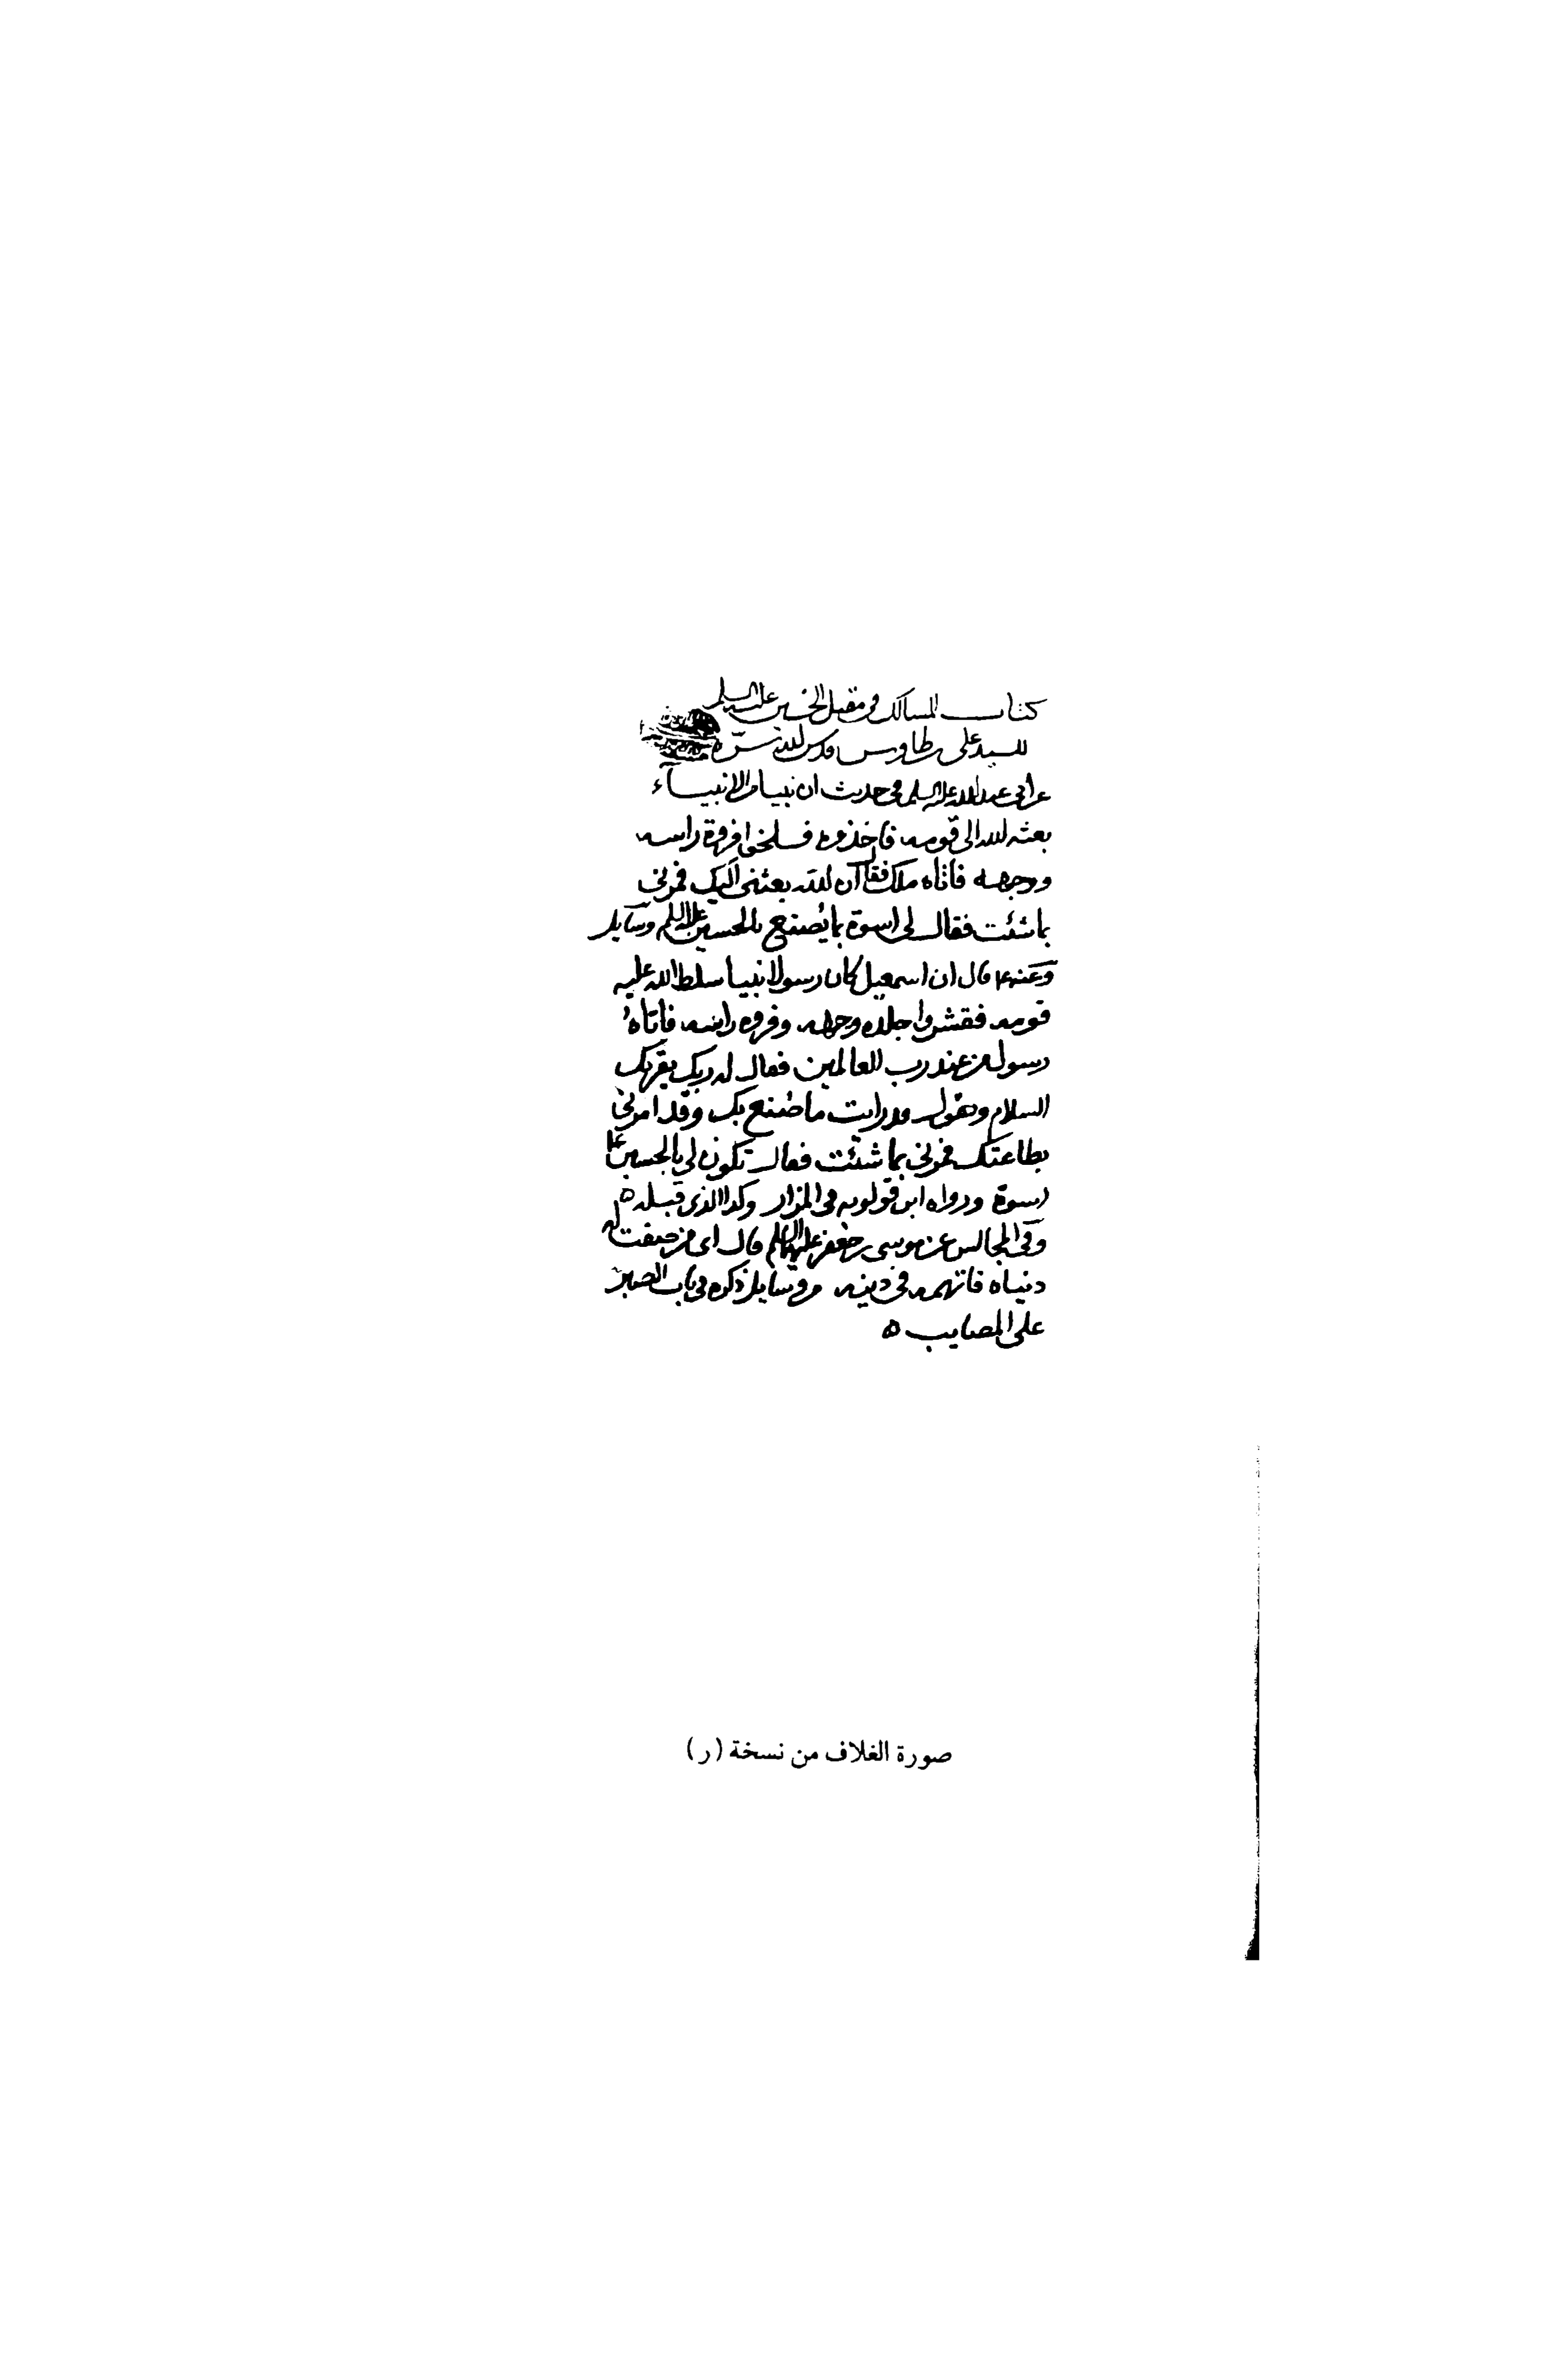 كتاب المسالك في مقتل الحسين عليه السلم
للسيد على بن طاوس قدس الله سره
عن ابي عبد الله عليه السلم في حديث ان نبيا من الانبياء
بعثه الله الى قومه فاخذوه فسلخوا فروة راسه
ووجهه فاتاه ملك فقال ان الله بعثني اليك فمرني
بما شئت فقال لي اسوة بما يُصنع بالحسين عليه السلم وسايل
وعنه ع قال ان اسمعيل كان رسولا نبيا سلط الله عليه
قومه فقشروا جلده وجهه وفروه راسه فاتاه
رسول من عند رب العالمين فقال له ربك يقرئك
السلام ويقول قد رايت ما صُنع بك وقد امرني
بطاعتك فمرني بما شئت فقال تكون لي بالحسين ع
اسوة ورواه ابن قولويه في المزار وكذا الذي قبله ه
وفي المجالس عن موسى بن جعفر عليهما السلم قال اي من صفت له
دنياه فاتهمه في دينه وسايل ذكره في باب الصبر
على المصايب ه
صورة الغلاف من نسخة (ر)